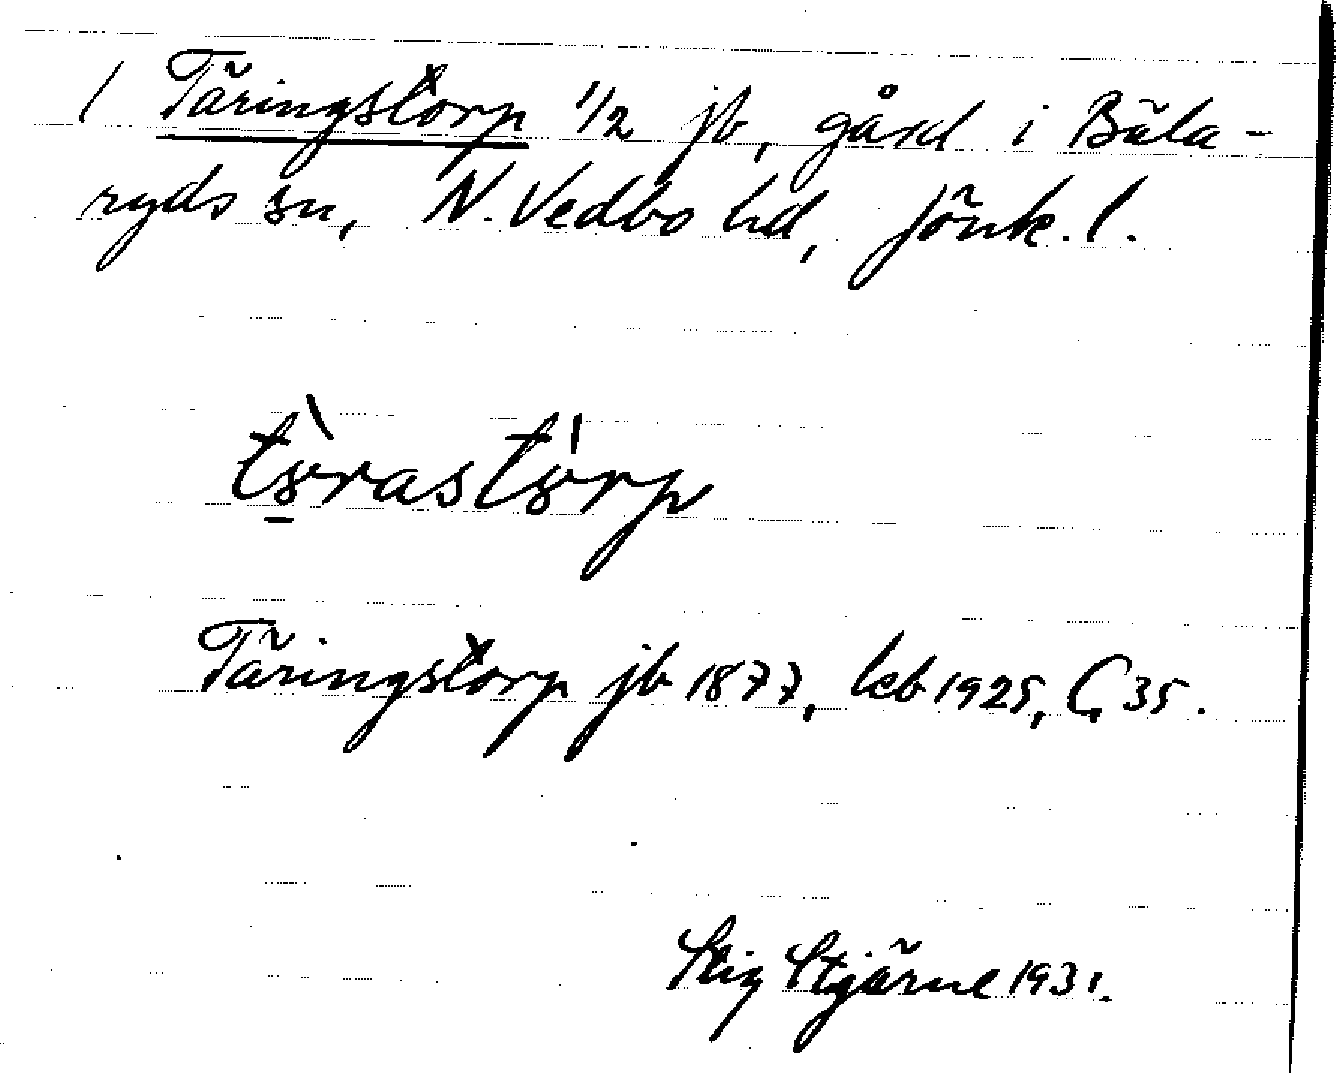 / Täringstorp 1/2 jb, gård i Bäla-
ryds sn, N. Vedbo hd, Jönk. l.
Täringstorp jb 1877, kb 1925, Ç 35.
Stig Stjärne 1931.